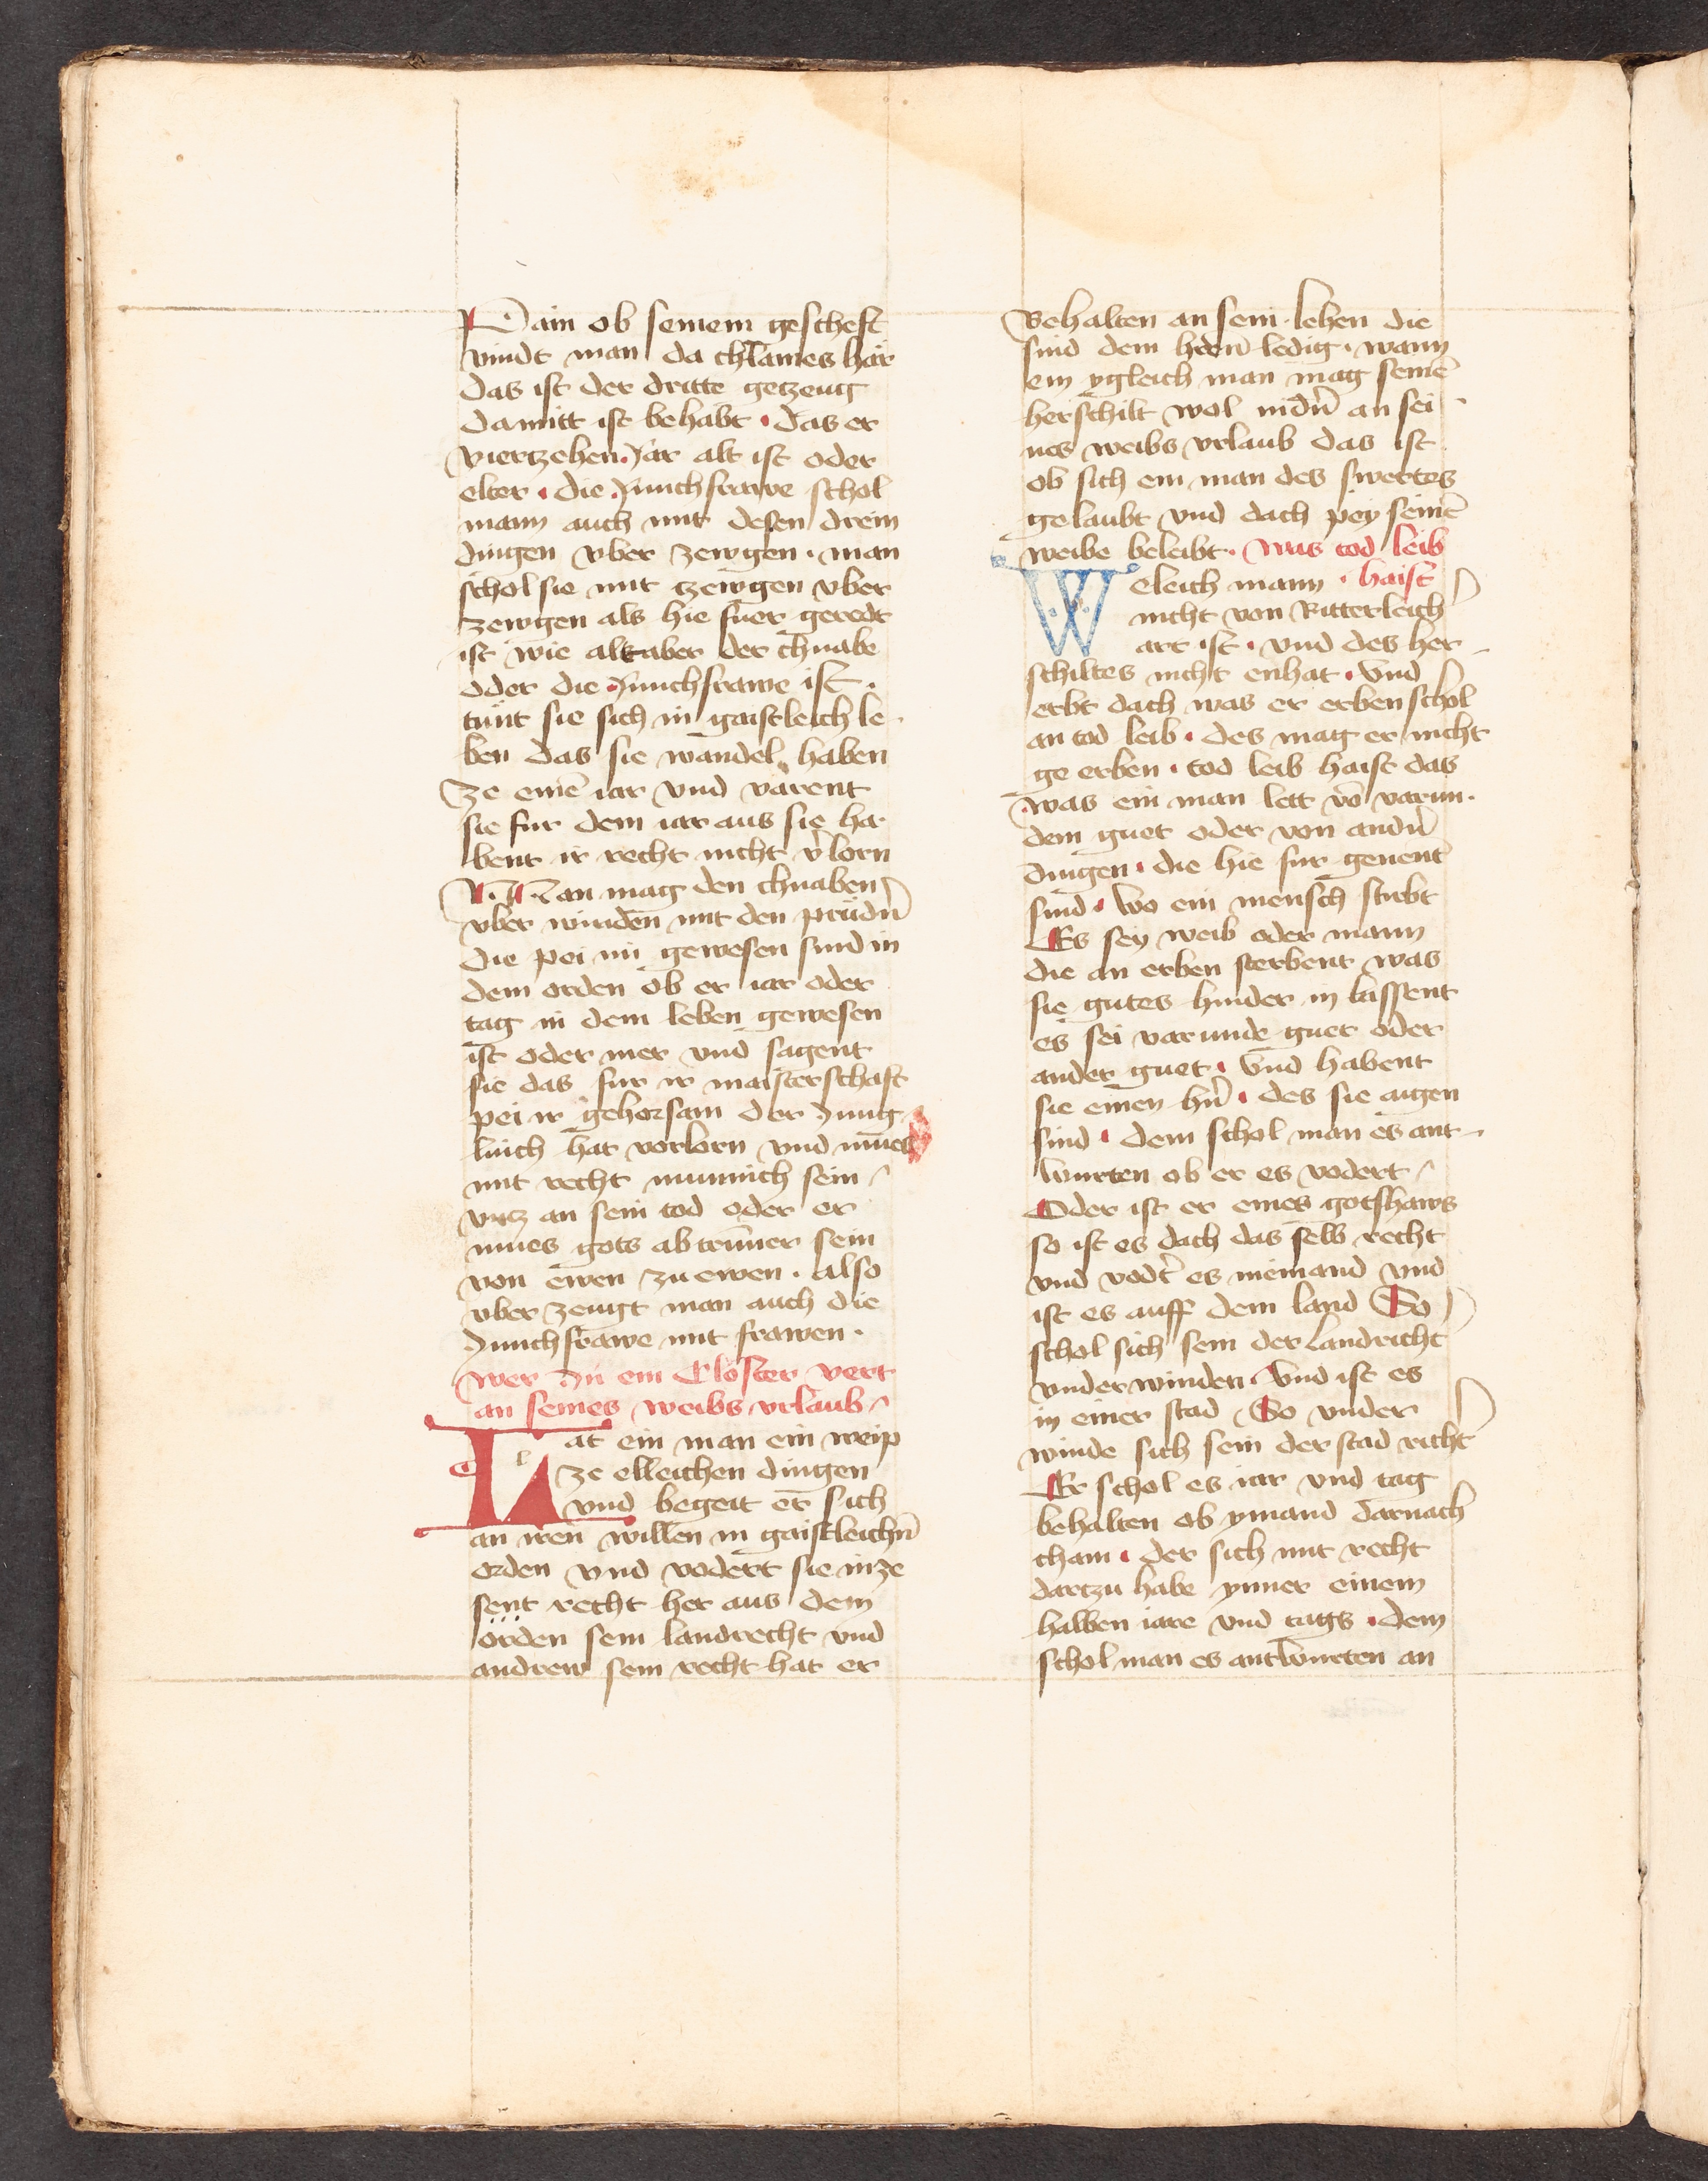 Pain ob seinem gescheft
vindt man da chlaines här
das ist der dritte getzeug
damitt ist behabt · das er
viertzehen Jar alt ist oder
elter · die Junchfrawe schol
mann auch mit desen drein
dingen vber zewgen · man
schol sie mit tzewgen vber
zewgen als hie fuer geredt
ist wie alt aber der chnabe
oder die Junchfrawe ist ·
tünt sie sich in gaistleich le-
ben das sie wandel haben
ze einē iar vnd varent
sie fur dem iar aus sie ha
bent ir recht nicht v̉lorn
Man mag den chnaben
vber winden mit den prüdn̄
die pei im gewesen sind in
dem orden ob er iar oder
tag in dem leben gewesen
ist oder mer vnd sagent
sie das fur ir maisterschaft
pei ir gehorsam der Jung-
linch hat vorlorn vnd mues
mit recht munnich sein
vntz an sein tod oder er
mues gots abtrūner sein
von ewen zu ewen · also
vber zeugt man auch die
Junchfrawe mit frawen ·
Wer In ein Closter vert
an seines weibs vrlaub
Hat ein man ein weip
ze elleichen dingen
vnd begeit er sich
an iren willen in gaistleichn̄
orden vnd vodert sie in ze
sent recht her aus dem
orden sein landrecht vnd
andrew sein recht hat er
Behalten an sein lehen die
sind dem herrn̄ ledig · wann
ein ygleich man mag seinē
herschilt wol nidn̄ an sei-
nes weibs vrlaub das ist
ob sich ein man des swertes
gelaubt vnd dach pey seinē
weibe beleibt · Was tod leib
Weleich mann · haist
nicht von Ritterleich
art ist · vnd des her-
schiltes nicht enhat · Vnd
erbt dach was er erben schol
an tod leib · des mag er nicht
ge erben · tod leib haist das
was ein man lett vō varun-
dem guet oder von andn̄
dingen · die hie fur genent
sind · Wo ein mensch stirbt
Es sey weib oder mann
die an erben sterbent was
sie gutes hinder in lassent
es sei varunde guet oder
ander guet · Vnd habent
sie einen hn̄ · des sie aigen
sind · dem schol man es ant-
wurten ob er es vodert
Oder ist er eines gotshaws
so ist es dach das selb recht
vnd vodt̉ es niemand vnd
ist es auff dem land So
schol sich sein der Landricht̉
vnderwinden · Vnd ist es
in einer stad So vnder
winde sich sein der stad richt̉
Er schol es iar vnd tag
behalten ob ymand darnach
cham · der sich mit recht
dartzu habe ynner einem
halben iare vnd tags · dem
schol man es antwurten an